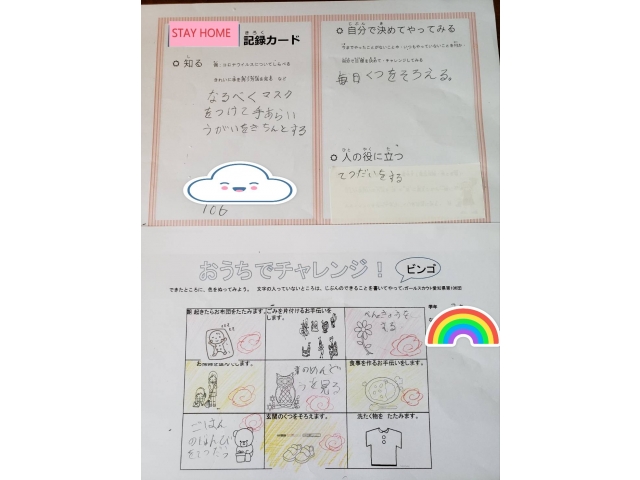 STAY HOME
きろく
記録カード
し
知る
なるべくマスク
をつけて手あらい
うがいをきちんとする
106
じぶん き
自分で決めてやってみる
毎日くつをそろえる。
ひと やく た
人の役に立つ
てつだいをする
おうちでチャレンジ!
ビンゴ
できたところに、色をぬってみよう。 文字の入っていないところは、じぶんのできることを書いてやって
学年
朝起きたらお布団をたたみます。
ごみを片付けるお手伝いを
します。
べんきょうを
する
食事を作るお手伝いをします。
めんど
うを見る
ごはん
のじゅんび
をてつだう
玄関のくつをそろえます。
洗たく物を たたみます。